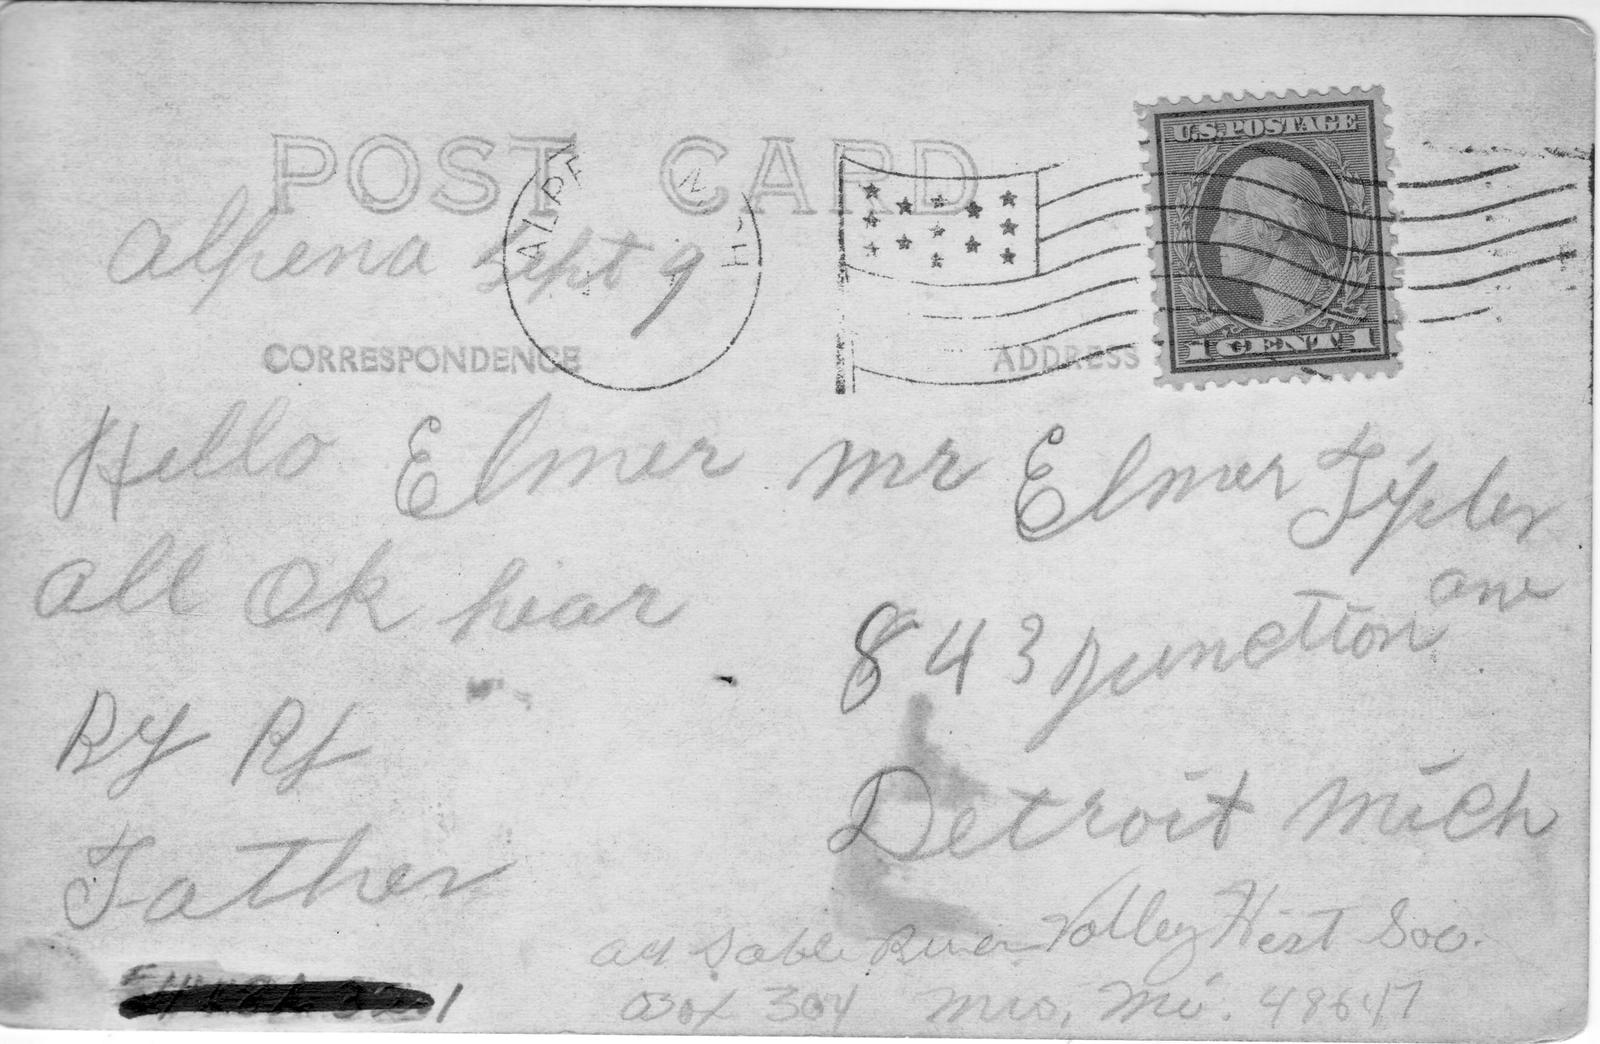 POST CARD
U.S. POSTAGE
1 CENT 1
Alpena Sept 9
CORRESPONDENCE
ADDRESS
Hello Elmer
all Ok hear
By By
Father
mr Elmer
ave
843 Junction
Detroit Mich
Au Sable River Valley Hist Soc.
Box 304 Mio, Mi. 48647